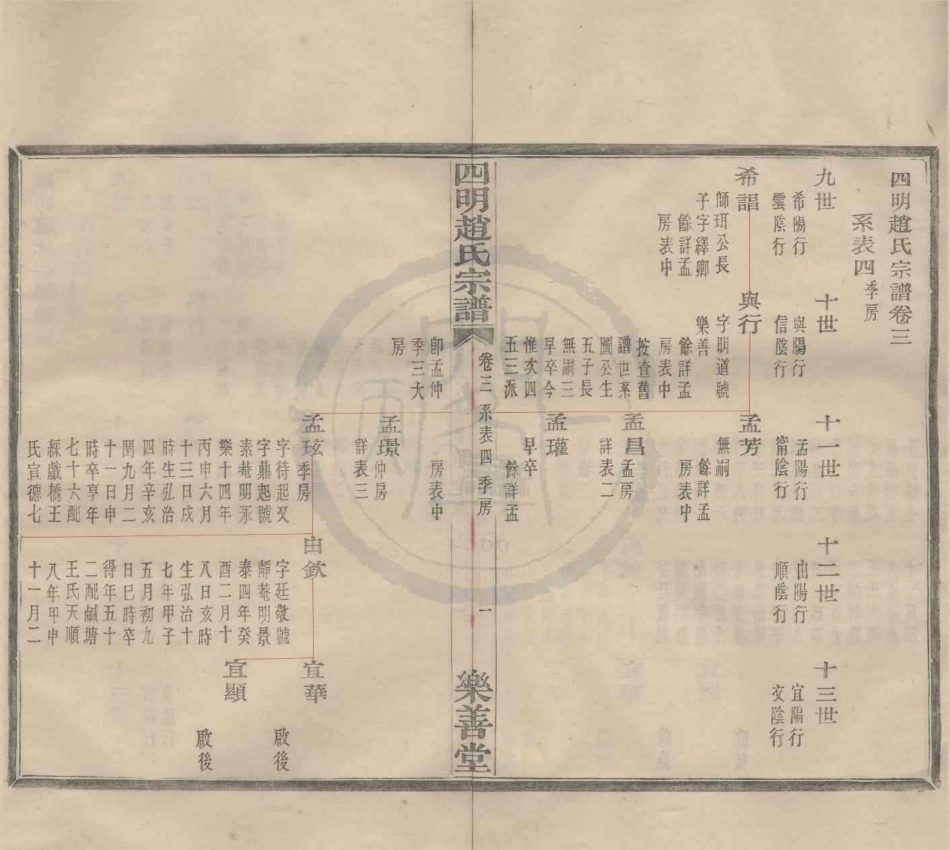 四明趙氏宗譜卷三
系表四季房
九世
希陽行
雲陰行
十世
與陽行
信陰行
十一世
孟陽行
甯陰行
十二世
由陽行
順陰行
十三世
宜陽行
交陰行
希詔
師珥公長
子字繹卿
餘詳孟
房表中
與行
字明道號
樂善
餘詳孟
房表中
按查舊
譜世系
圖公生
五子長
無嗣三
早卒今
惟次四
五三派
孟芳
無嗣
餘詳孟
房表中
孟昌孟房
詳表二
孟瓘
早卒
餘詳孟
房表中
即孟仲
季三大
房
孟璟仲房
詳表三
孟玹季房
字待起又
字鼎起號
素菴明永
樂十四年
丙申六月
十三日戌
時生弘治
四年辛亥
閏九月二
十一日申
時卒享年
七十六配
綵戲橋王
氏宣德七
由欽
字廷敬號
靜菴明景
泰四年癸
酉二月十
八日亥時
生弘治十
七年甲子
五月初九
日巳時卒
得年五十
二配鹹塘
王氏天順
八年甲申
十一月二
宜華
啟後
宜顯
啟後
四明趙氏宗譜
卷三 系表四 季房
一
樂善堂
1956